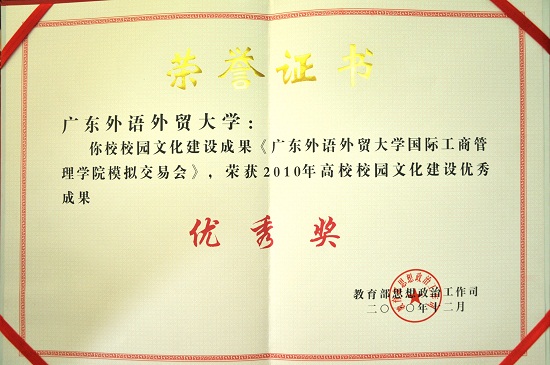 荣誉证书
广东外语外贸大学：
你校校园文化建设成果《广东外语外贸大学国际工商管
理学院模拟交易会》，荣获2010年高校校园文化建设优秀
成果
优秀奖
教育部思想政治工作司
二〇一〇年十二月